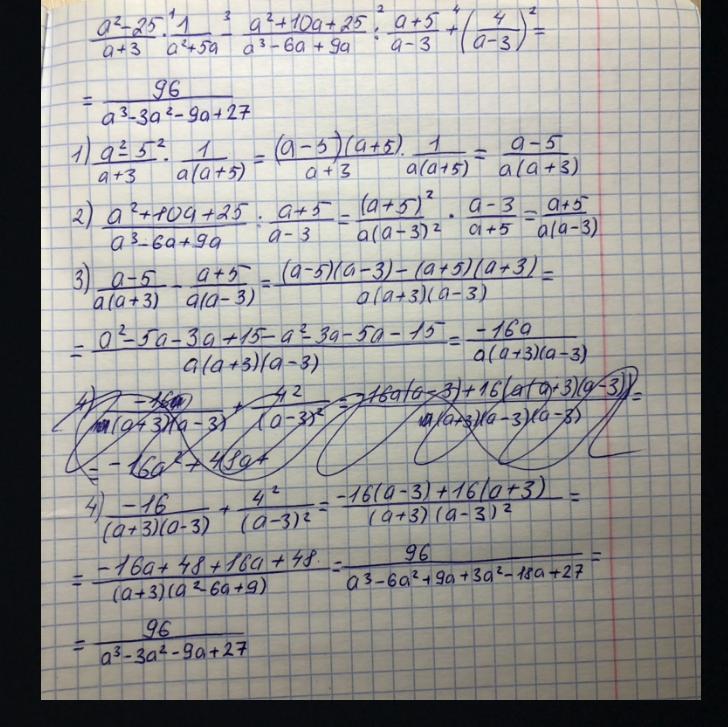 (a²-25)/(a+3) ·¹ 1/(a²+5a) -³ (a²+10a+25)/(a³-6a+9a) :² (a+5)/(a-3) +⁴ (4/(a-3))² =
= 96/(a³-3a²-9a+27)
1) (a²-5²)/(a+3) · 1/(a(a+5)) = ((a-5)(a+5))/(a+3) · 1/(a(a+5)) = (a-5)/(a(a+3))
2) (a²+10a+25)/(a³-6a+9a) : (a+5)/(a-3) = (a+5)²/(a(a-3)²) · (a-3)/(a+5) = (a+5)/(a(a-3))
3) (a-5)/(a(a+3)) - (a+5)/(a(a-3)) = ((a-5)(a-3)-(a+5)(a+3))/(a(a+3)(a-3)) =
= (a²-5a-3a+15-a²-3a-5a-15)/(a(a+3)(a-3)) = (-16a)/(a(a+3)(a-3))
4) (-16)/((a+3)(a-3)) + 4²/(a-3)² = (-16(a-3)+16(a+3))/((a+3)(a-3)²) =
= (-16a+48+16a+48)/((a+3)(a²-6a+9)) = 96/(a³-6a²+9a+3a²-18a+27) =
= 96/(a³-3a²-9a+27)